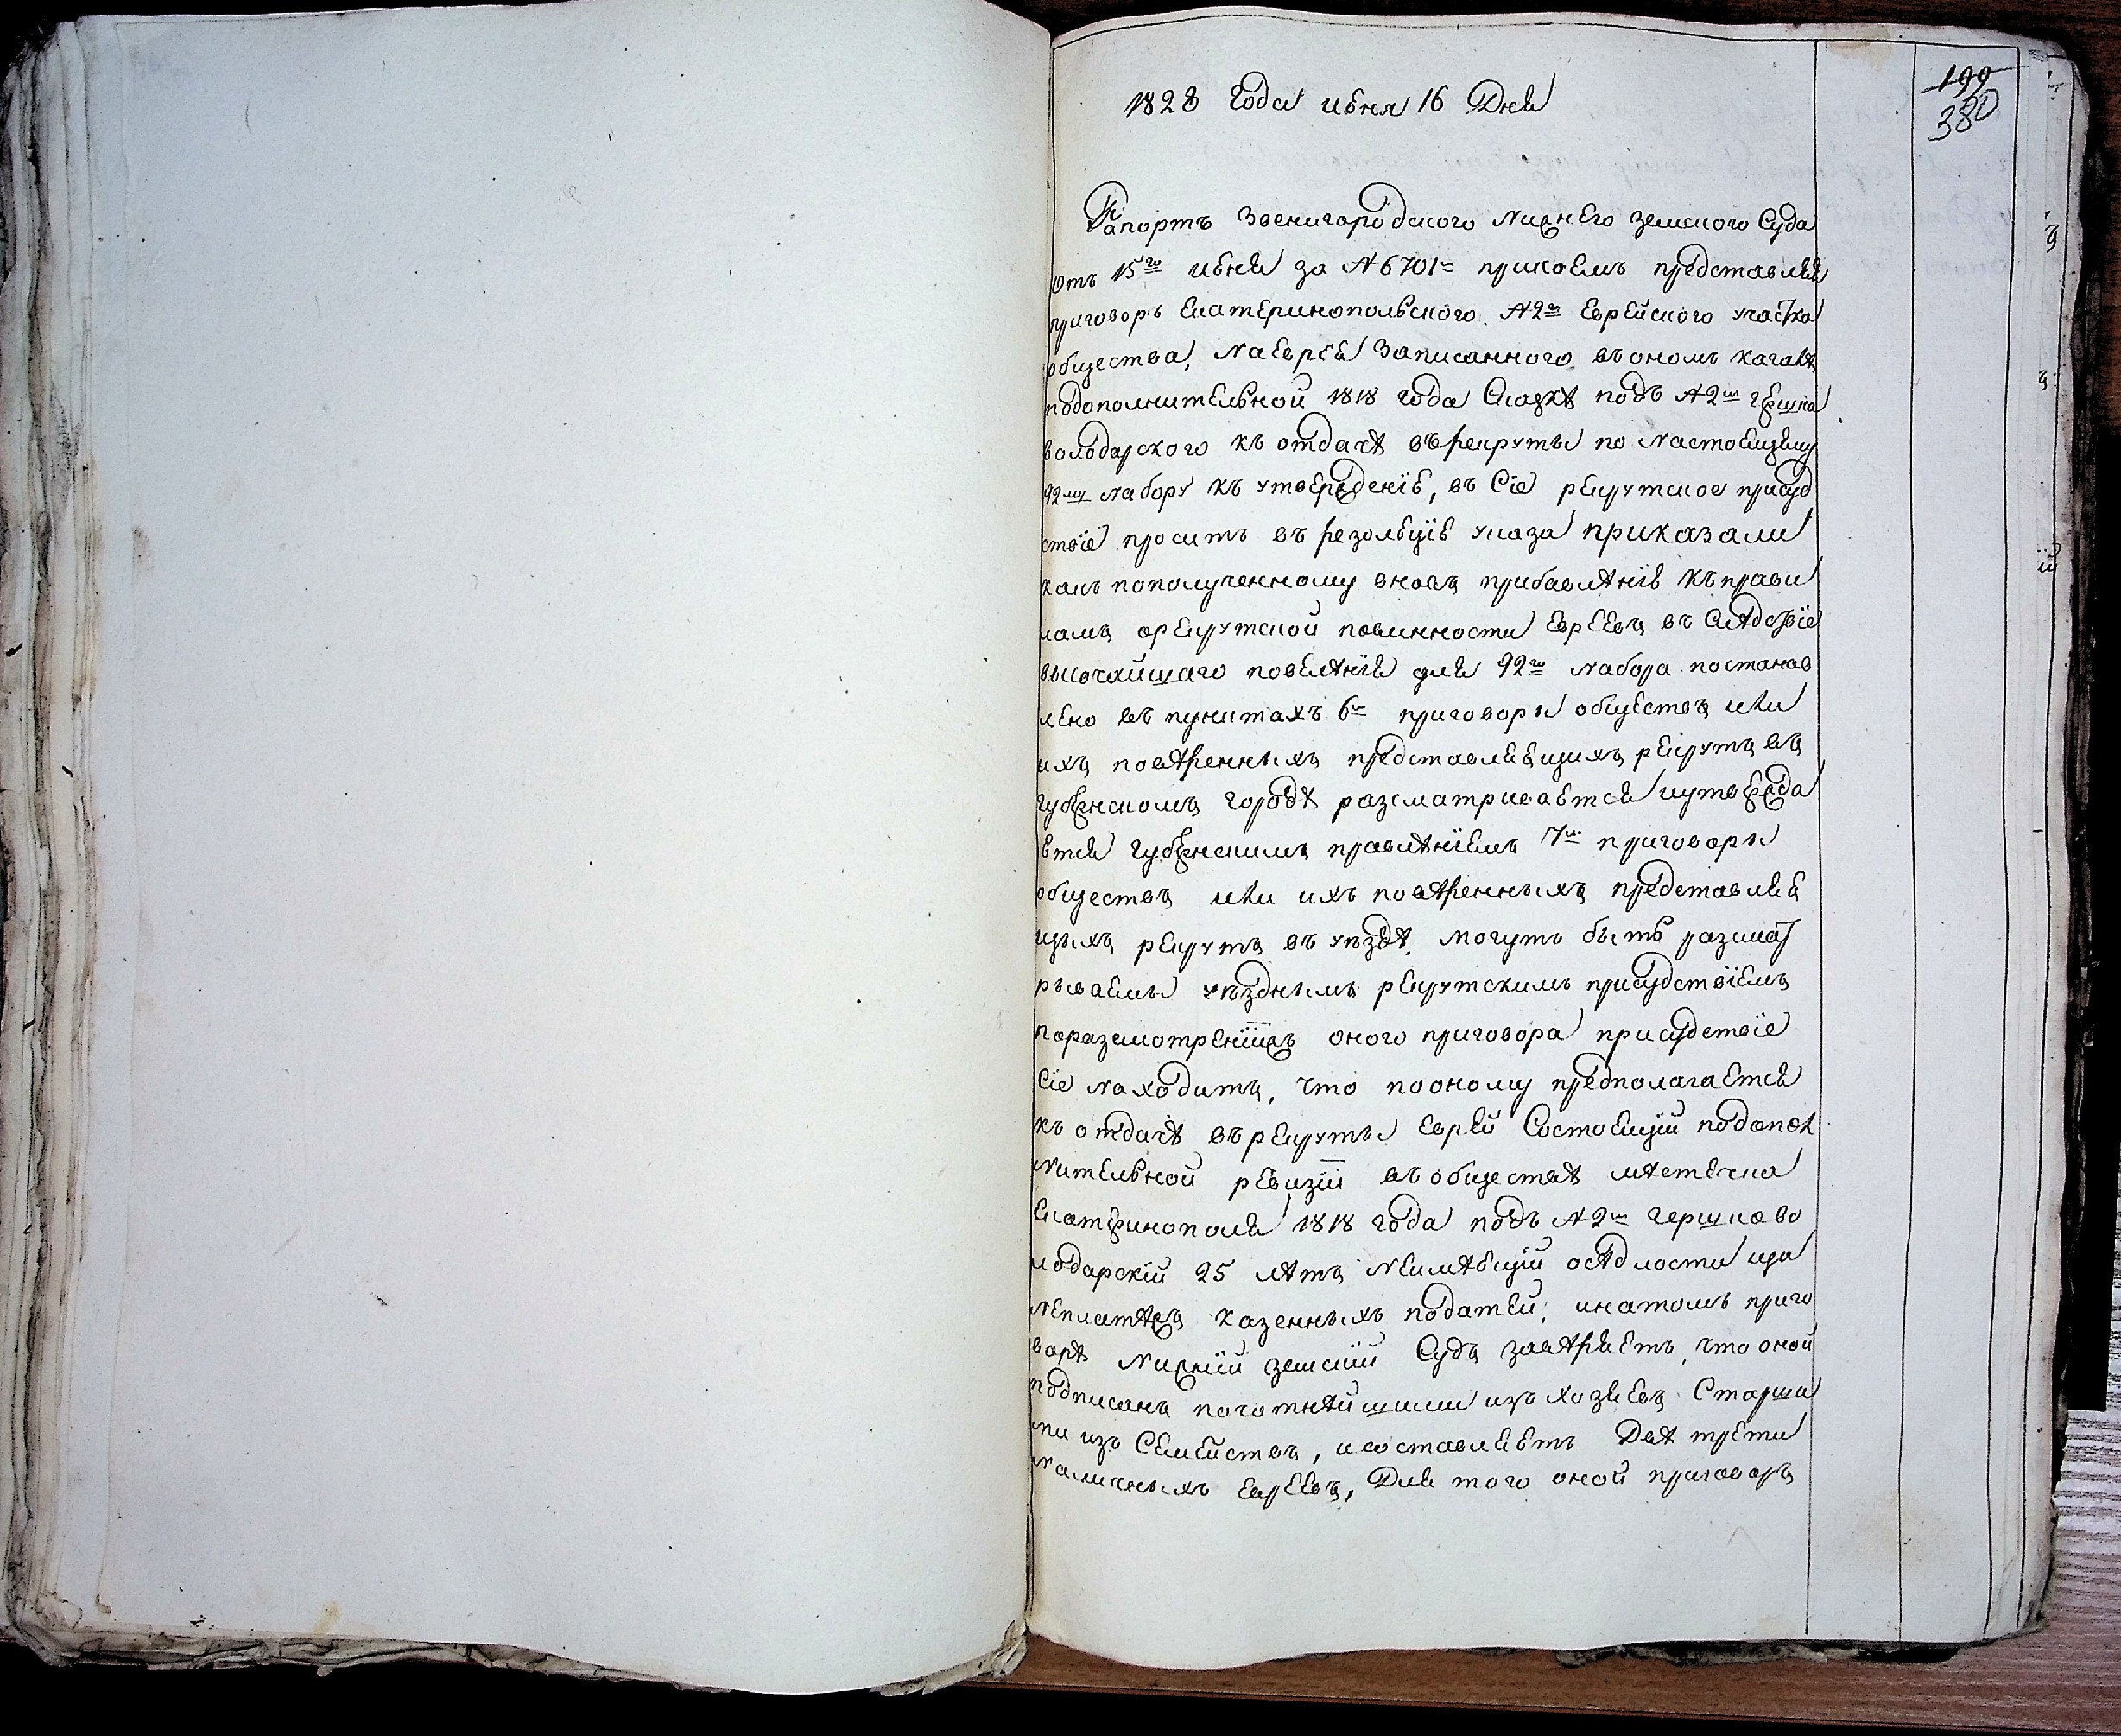 199
380
1828 Года июня 16 Дня
Рапортъ Звенигородского Нижнего земского Суда
отъ 15го июня за № 6701м прикоемъ представляя
приговоръ Екатеринопольского № 2м Еврейского участка
общества, на еврея Записанного въ ономъ кагалѣ
подополнительной 1818 года Сказкѣ подъ № 2м Гершка
володарского къ отдачѣ въ рекруты по настоящему
92му набору къ утвержденію, въ Сіе рекрутское присуд
ствіе просить въ резолюцію указа приказали
какъ пополученному вновъ прибавлѣнію къ прави
ламъ орекрутской повинности Евреевъ въ Слѣдствіе
высочайшаго повелѣнія для 92го набора постанов
лено въ пунктахъ 6м приговоры обществъ или
ихъ повѣренныхъ представляющихъ рекрутъ въ
губернскомъ городѣ разсматриваются иутвержда
ются Губернскимъ правлѣніемъ 7м приговоры
обществъ или ихъ повѣренныхъ представляю
щихъ рекрутъ въ уѣздѣ, могутъ быть разсмат
рываемы уѣзднымъ рекрутскимъ присудствіемъ
поразсмотреніи жъ оного приговора присудствіе
Сіе находитъ, что пооному предполагается
къ отдачѣ въ рекруты еврей Состоящій подопол
нительной ревизіи въ обществѣ мѣстечка
Екатеринополя 1818 года подъ № 2м Гершко во
лодарскій 25 лѣтъ Неимѣющій осѣдлости иза
неплатежъ казенныхъ податей, инатомъ приго
ворѣ Нижній земскій Судъ завѣряетъ, что оной
подписанъ почотнѣйшими изъ хозяевъ Старша
ми изъ Семействъ, исоставляютъ Двѣ трети
наличныхъ евреевъ, Для того оной приговоръ